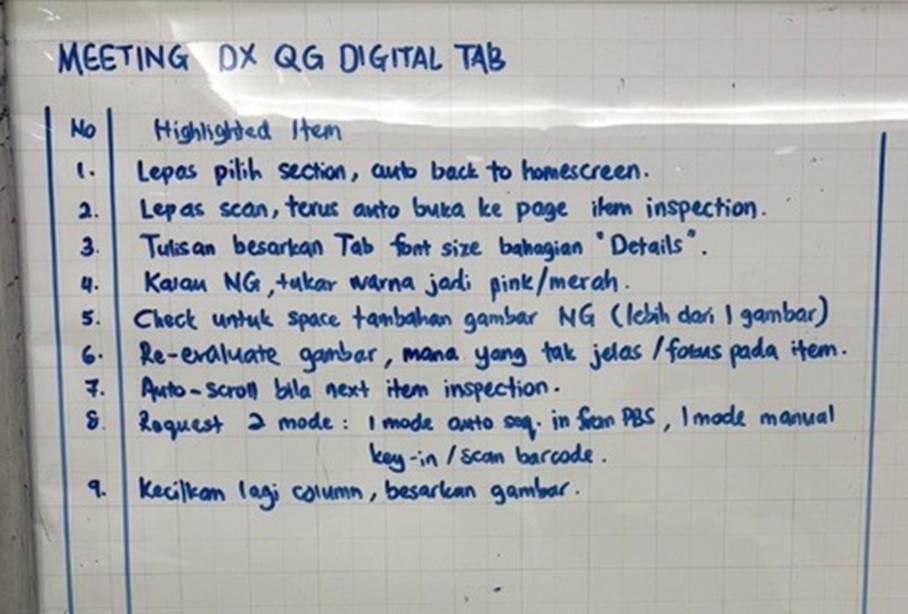 MEETING DX QG DIGITAL TAB
No Highlighted Item
1. Lepas pilih section, auto back to homescreen.
2. Lepas scan, terus auto buka ke page item inspection.
3. Tulisan besarkan Tab font size bahagian "Details".
4. Kalau NG, tukar warna jadi pink/merah.
5. Check untuk space tambahan gambar NG (lebih dari 1 gambar)
6. Re-evaluate gambar, mana yang tak jelas / fokus pada item.
7. Auto-scroll bila next item inspection.
8. Request 2 mode : 1 mode auto seq. in from PBS, 1 mode manual
key-in / scan barcode.
9. Kecilkan lagi column, besarkan gambar.